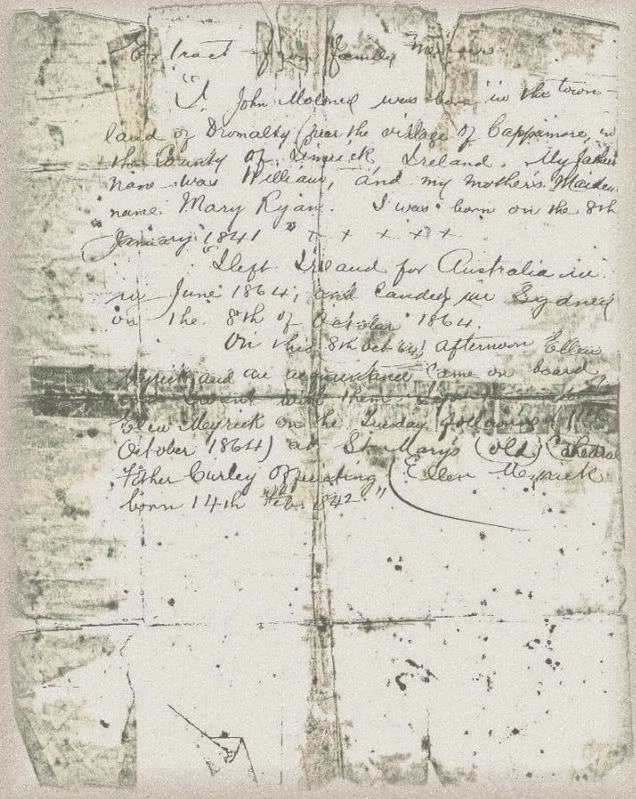 Extract from family Memoirs
"I, John Moloney was born in the town-
land of Dromalty (near the village of Cappamore, in
the County of Limerick, Ireland. My father
name was William, and my mother's Maiden
name Mary Ryan. I was born on the 8th
January 1841 " x x x x x
"I left Ireland for Australia in
in June 1864, and landed in Sydney
on the 8th of October 1864.
On this 8th Oct 64, afternoon Ellen
Meyrick and an acquaintance came on board
them
Ellen Meyrick on the Tuesday following (11th
October 1864) at St Mary's (old) Cathedral
Father Curley Officiating (Ellen Meyrick
born 14th Feb. 1842."